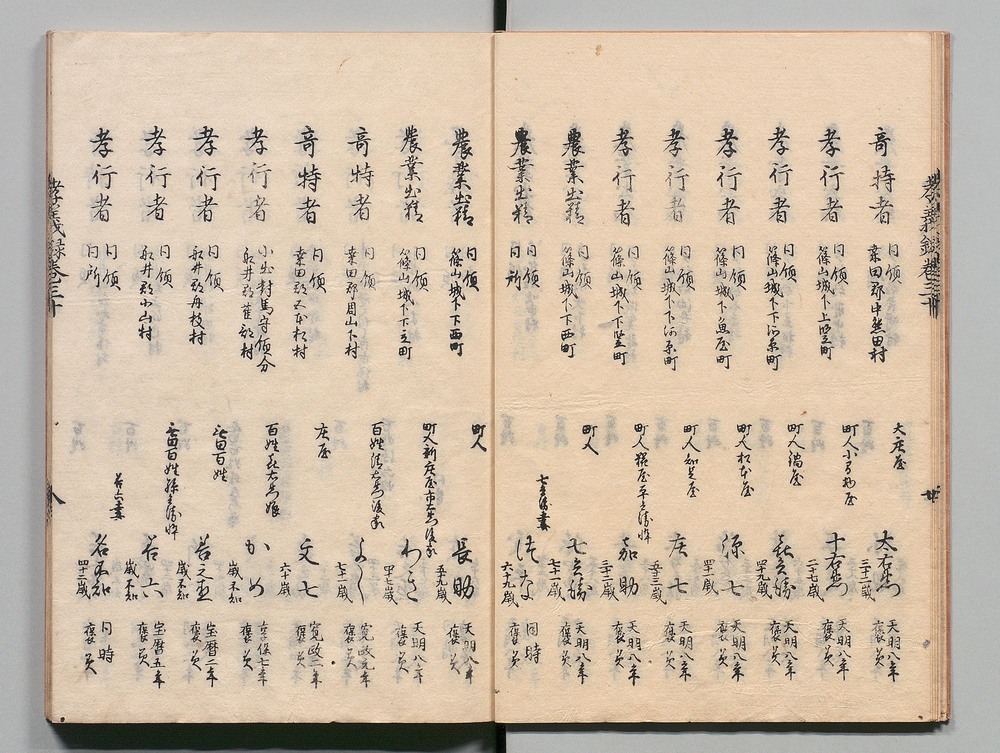 孝義録巻三十
奇特者 同領 桑田郡中熊田村 大庄屋 太右衛門 三十二歳 天明八年 褒美
孝行者 同領 篠山城下上竪町 町人小間物屋 十右衛門 二十七歳 天明八年 褒美
孝行者 同領 篠山城下下河原町 町人 屋 喜兵衛 四十九歳 天明八年 褒美
孝行者 同領 篠山城下魚屋町 町人松本屋 源七 四十歳 天明八年 褒美
孝行者 同領 篠山城下下河原町 町人知足屋 庄七 五十三歳 天明八年 褒美
孝行者 同領 篠山城下下竪町 町人 屋平兵衛忰 加助 三十二歳 天明八年 褒美
農業出精 同領 篠山城下下西町 町人 七兵衛 七十一歳 天明八年 褒美
農業出精 同領 同所 七兵衛妻 つな 六十九歳 同時 褒美
農業出精 同領 篠山城下下西町 町人 長助 五十九歳 天明八年 褒美
農業出精 同領 篠山城下下立町 町人新庄屋市右衛門後家 わき 四十七歳 天明八年 褒美
奇特者 同領 桑田郡周山下村 百姓清右衛門後家 よし 七十一歳 寛政元年 褒美
奇特者 同領 桑田郡 村 庄屋 文七 六十歳 寛政二年 褒美
孝行者 小出対馬守領分 船井郡 村 百姓 娘 かめ 歳不知 享保七年 褒美
孝行者 同領 船井郡 村 百姓 若之丞 歳不知 宝暦二年 褒美
孝行者 同領 船井郡小山村 百姓孫兵衛忰 若六 歳不知 宝暦五年 褒美
孝行者 同領 同所 若六妻 名不知 四十二歳 同時 褒美
孝義録巻三十
八